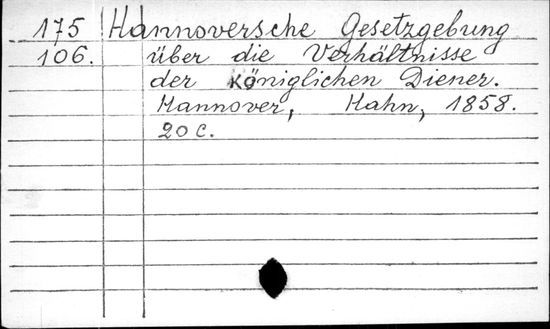 175 Hannoversche Gesetzgebung
106. über die Verhältnisse
der königlichen Diener.
Hannover, Hahn, 1858.
20 c.